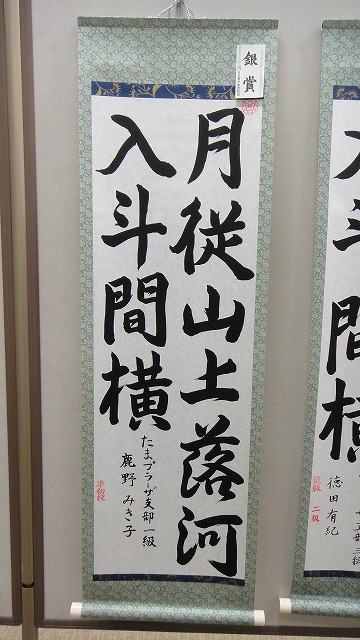 銀賞
月従山上落河
入斗間横
たまプラーザ支部一級
鹿野みき子
準初段
徳田有紀
進級 二級